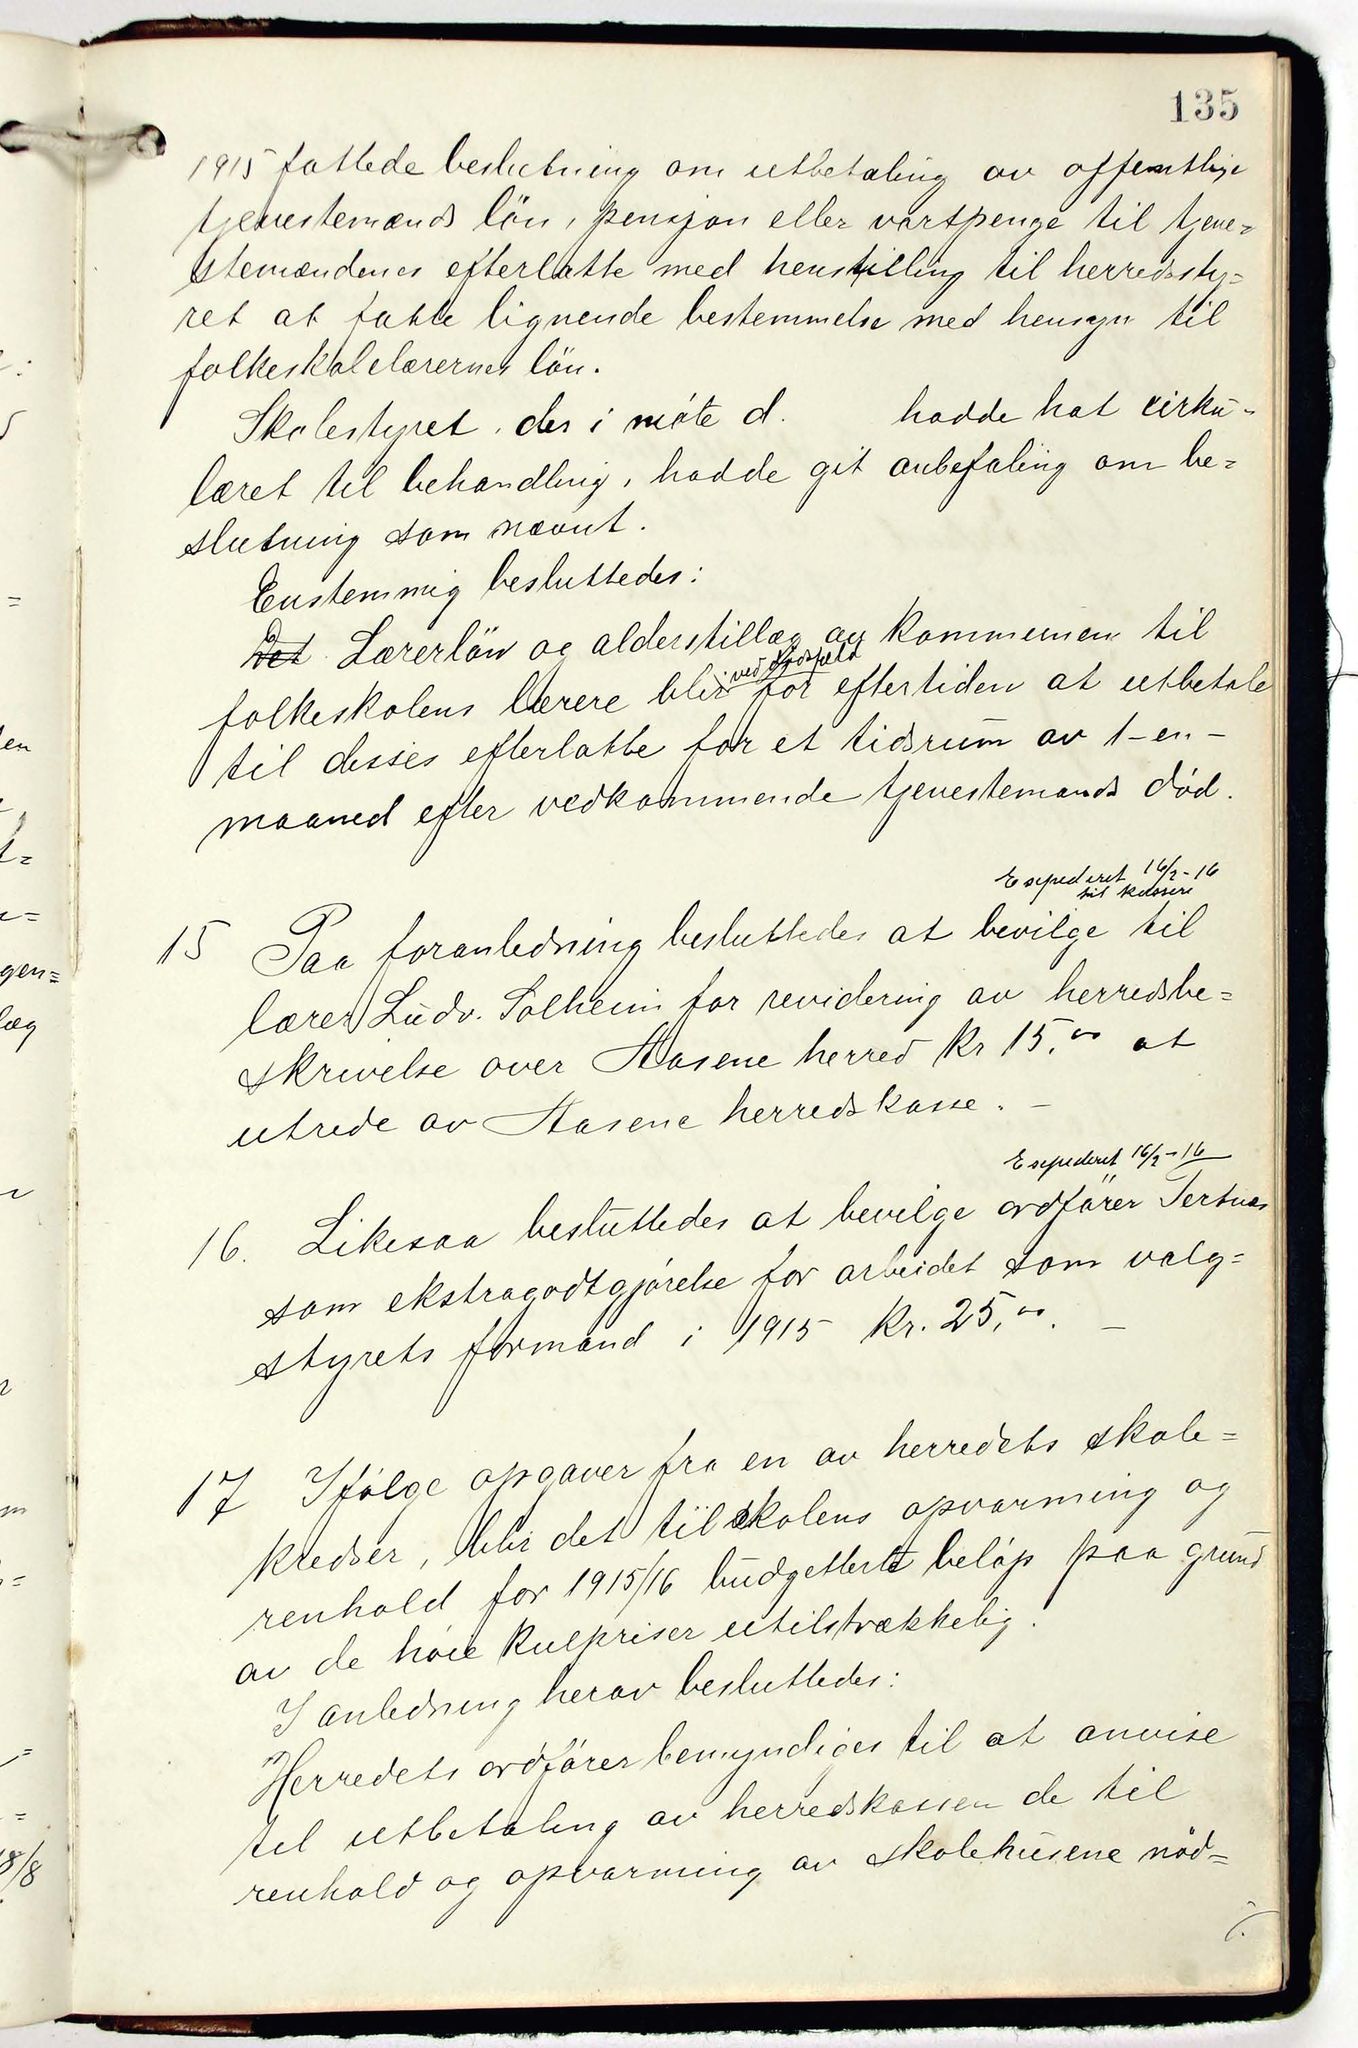 135
1915 fattede beslutning om utbetaling av offentlige
tjenestemænds lön, pensjon eller vartpenge til tjene-
stemændenes efterlatte med henstilling til herredssty-
ret at fatte lignende bestemmelse med hensyn til
folkeskolelærernes lön.
Skolestyret, der i möte d. hadde hat cirku-
læret til behandling, hadde git anbefaling om be-
slutning som nævnt.
Enstemmig besluttedes:
Det Lærerlön og alderstillæg av kommunen til
ved dödsfald
folkeskolens lærere blir for eftertiden at utbetale
til disses efterlatte for et tidsrum av 1-en-
maaned efter vedkommende tjenestemands död.
Expederet 16/2-16
til kasserer
15 Paa foranledning besluttedes at bevilge til
lærer Ludv. Solheim for revidering av herredsbe-
skrivelse over Aasene herred kr 15,00 at
utrede av Aasene herredskasse. -
Expederet 16/2-16
16. Likesaa besluttedes at bevilge ordförer Tertnæs
som ekstragodtgjörelse for arbeidet som valg-
styrets formand i 1915 kr. 25,00. -
17 Ifölge opgaver fra en av herredets skole-
kredser, blir det til skolens opvarming og
renhold for 1915/16 budgetterte belöp paa grund
av de höie kulpriser utilstrækkelig.
I anledning herav besluttedes:
Herredets ordförer bemyndiges til at anvise
til utbetaling av herredskassen de til
renhold og opvarming av skolehusene nöd-